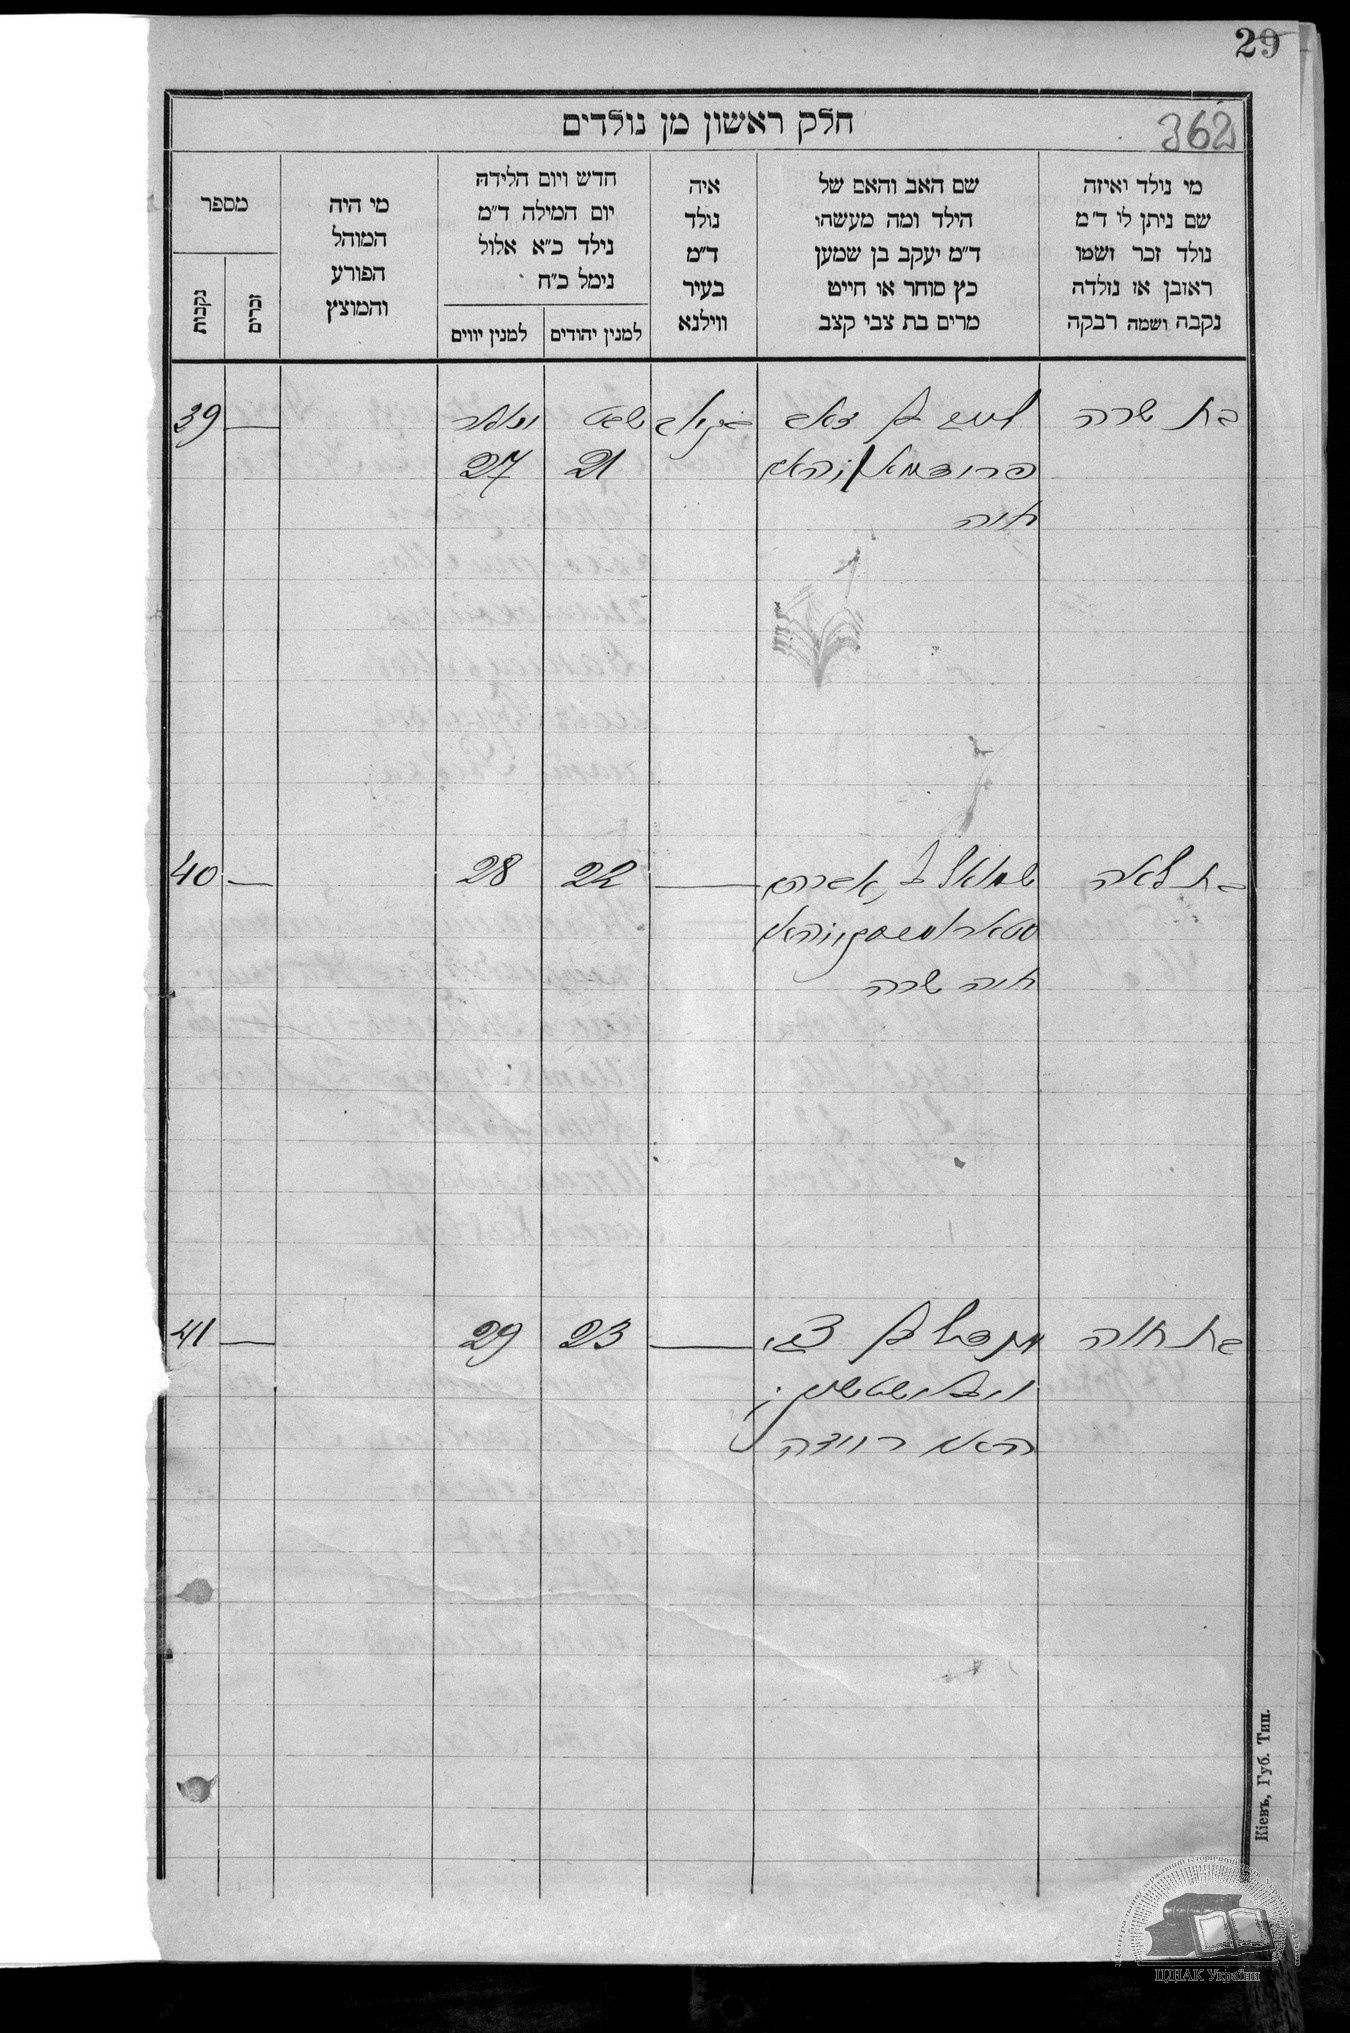 29
362
חלק ראשון מן נולדים
מי נולד ואיזה
שם ניתן לו ד״מ
נולד זכר ושמו
ראובן או נולדה
נקבה ושמה רבקה
שם האב והאם של
הילד ומה מעשהו
ד״מ יעקב בן שמעון
כץ סוחר או חייט
מרים בת צבי קצב
איה
נולד
ד״מ
בעיר
ווילנא
חדש ויום הלידה
יום המילה ד״מ
נילד כ״א אלול
נימל כ״ח
למנין יהודים
למנין יווים
מי היה
המוהל
הפורע
והמוצץ
מספר
זכרים
נקבות
בת שרה
בן זאב
והאם
חיה
שבט
21
ינואר
27
39
בת לאה
שמואל ב׳ אברהם
והאם
חיה שרה
22
28
40
בת חוה
בן צבי
האם רויזה
23
29
41
Кіевъ, Губ. Тип.
ЦДІАК України